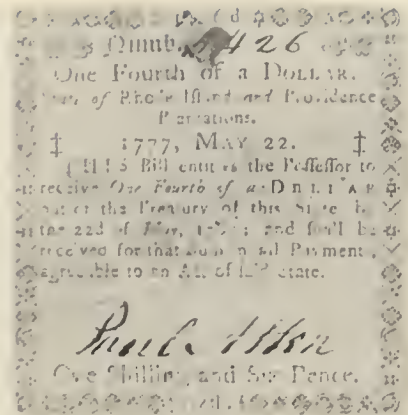 Numb. 426
One Fourth of a DOLLAR.
State of Rhode Island and Providence
Plantations.
‡ 1777, MAY 22. ‡
THIS Bill entitles the Possessor to
receive One Fourth of a DOLLAR
out of the Treasury of this State by
the 22d of May, and shall be
received for that Sum in all Payments,
agreeable to an Act of said State.
Paul Allen
One Shilling and Six Pence.